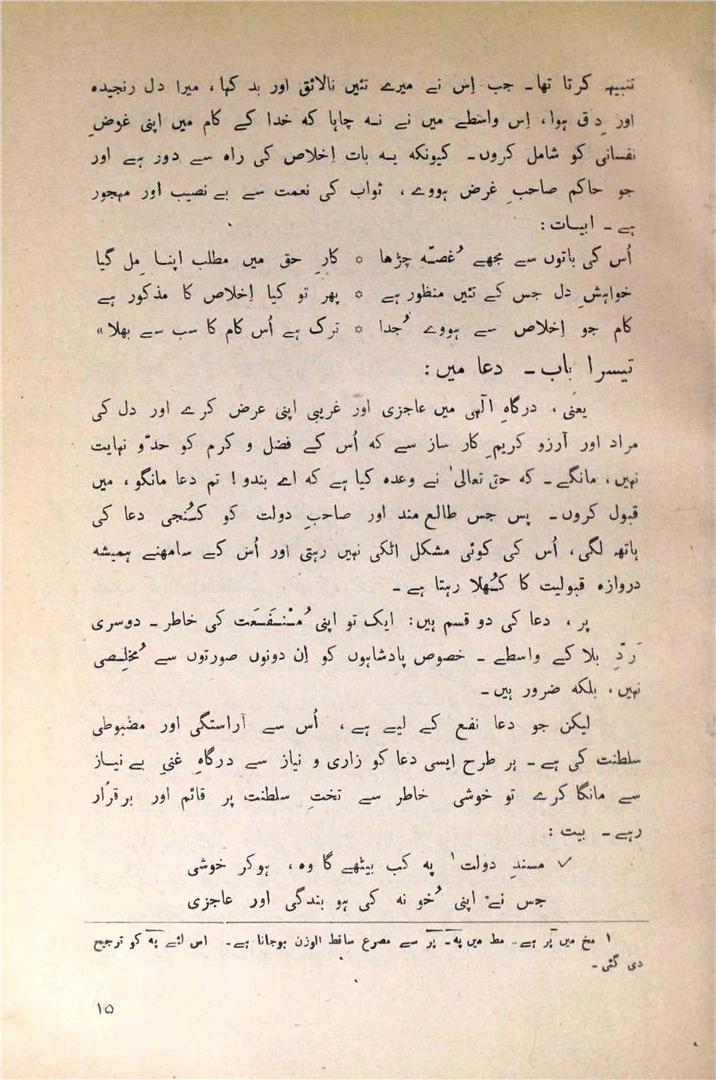 تنبیہہ کرتا تھا۔ جب اِس نے میرے تئیں نالائق اور بد کہا، میرا دل رنجیدہ
اور دِق ہوا، اِس واسطے میں نے نہ چاہا کہ خدا کے کام میں اپنی غرضِ
نفسانی کو شامل کروں۔ کیونکہ یہ بات اِخلاص کی راہ سے دور ہے اور
جو حاکم صاحبِ غرض ہووے، ثواب کی نعمت سے بے نصیب اور مہجور
ہے۔ ابیات:
اُس کی باتوں سے مجھے غُصّہ چڑھا * کارِ حق میں مطلب اپنا مِل گیا
خواہشِ دل جس کے تئیں منظور ہے * پھر تو کیا اِخلاص کا مذکور ہے
کام جو اِخلاص سے ہووے جُدا * ترک ہے اُس کام کا سب سے بھلا»
تیسرا باب۔ دعا میں:
یعنی، درگاہِ الٰہی میں عاجزی اور غریبی اپنی عرض کرے اور دل کی
مراد اور آرزو کریمِ کار ساز سے کہ اُس کے فضل و کرم کو حدّو نہایت
نہیں، مانگے۔ کہ حق تعالیٰ نے وعدہ کیا ہے کہ اے بندو! تم دعا مانگو، میں
قبول کروں۔ پس جس طالع مند اور صاحبِ دولت کو کُنجی دعا کی
ہاتھ لگی، اُس کی کوئی مشکل اٹکی نہیں رہتی اور اُس کے سامھنے ہمیشہ
دروازہ قبولیت کا کُھلا رہتا ہے۔
پر، دعا کی دو قسم ہیں: ایک تو اپنی مُنْفَعَت کی خاطر۔ دوسری
رَدِّ بلا کے واسطے۔ خصوص پادشاہوں کو اِن دونوں صورتوں سے مُخلِصی
نہیں، بلکہ ضرور ہیں۔
لیکن جو دعا نفع کے لیے ہے، اُس سے آراستگی اور مضبوطی
سلطنت کی ہے۔ ہر طرح ایسی دعا کو زاری و نیاز سے درگاہِ غنیِ بے نیاز
سے مانگا کرے تو خوشی خاطر سے تختِ سلطنت پر قائم اور برقرار
رہے۔ بیت:
✓ مسندِ دولت ۱ پہ کب بیٹھے گا وہ، ہوکر خوشی
جس نے اپنی خُو نہ کی ہو بندگی اور عاجزی
۱ مخ میں پر ہے۔ مط میں پہ۔ پر سے مصرع ساقط الوزن ہوجاتا ہے۔ اس لئے پہ کو ترجیح
دی گئی۔
۱۵